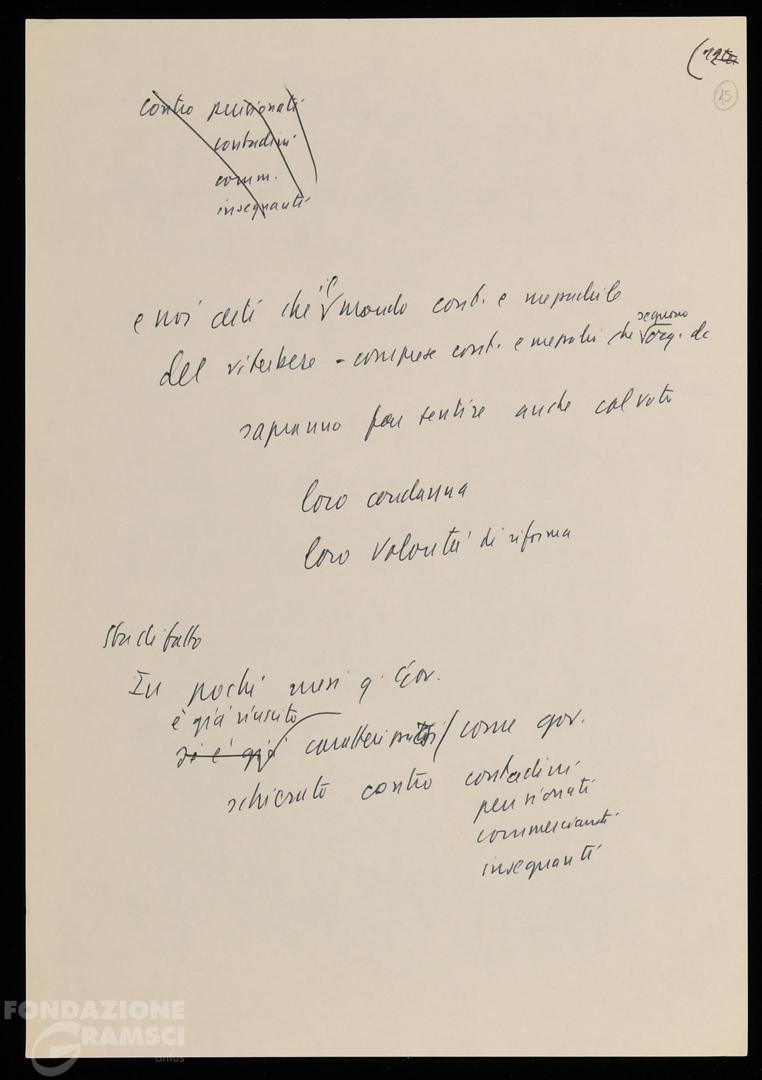 15
contro pensionati
contadini
comm.
insegnanti
e noi certi che il mondo cont. e
del viterbese - comprese cont. e che seguono org. dc
sapranno far sentire anche col voto
loro condanna
loro volontà di riforma
In pochi mesi q. Gov.
è già riuscito
si è già caratterizzato come gov.
schierato contro contadini
pensionati
commercianti
insegnanti
FONDAZIONE
GRAMSCI
onlus